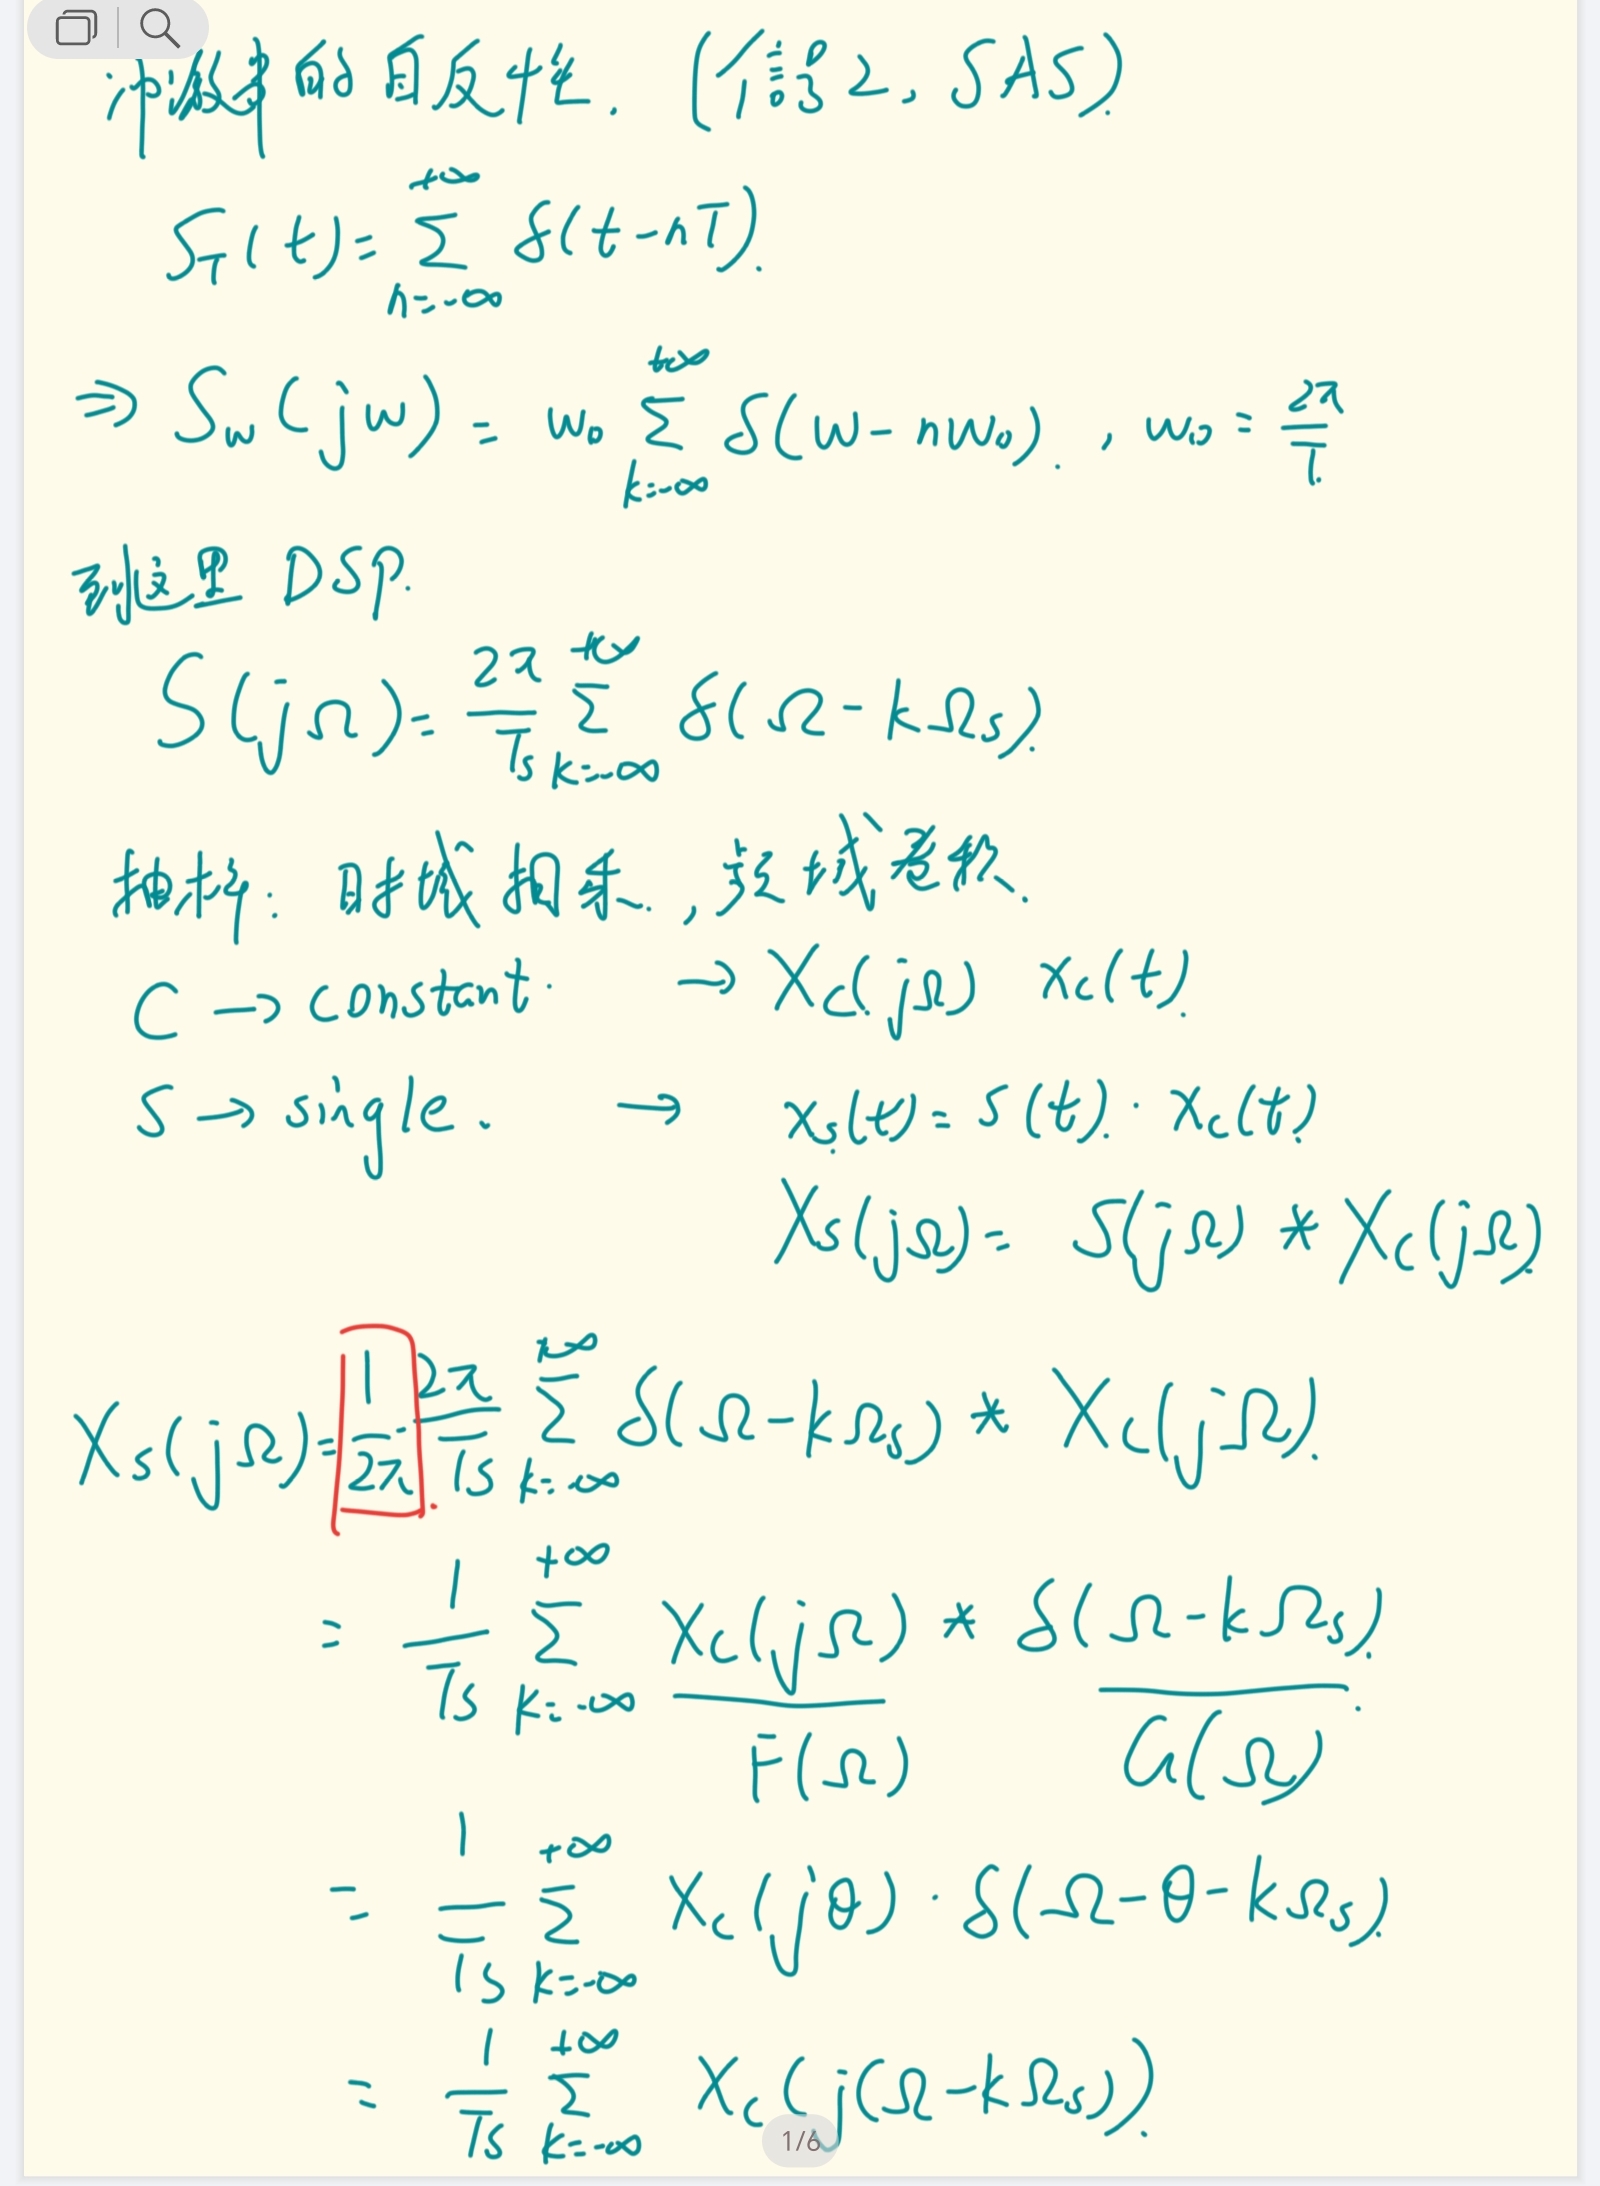 冲激串的自反性. (信号2, SAS)
S_T(t) = \sum_{n=-∞}^{+∞} δ(t-nT).
⇒ S_w(jw) = w_0 \sum_{k=-∞}^{+∞} δ(w-nw_0). , w_0 = \frac{2π}{T}.
到这里 DSP.
S(jΩ) = \frac{2π}{Ts} \sum_{k=-∞}^{+∞} δ(Ω-kΩ_s).
抽样: 时域相乘, 频域卷积.
C → constant. → X_c(jΩ) x_c(t)
S → single. → x_s(t) = s(t) · x_c(t)
X_s(jΩ) = S(jΩ) * X_c(jΩ)
X_s(jΩ) = \frac{1}{2π} · \frac{2π}{Ts} \sum_{k=-∞}^{∞} δ(Ω-kΩ_s) * X_c(jΩ)
= \frac{1}{Ts} \sum_{k=-∞}^{+∞} X_c(jΩ) * δ(Ω-kΩ_s)
F(Ω) G(Ω)
= \frac{1}{Ts} \sum_{k=-∞}^{+∞} X_c(jθ) · δ(Ω-θ-kΩ_s)
= \frac{1}{Ts} \sum_{k=-∞}^{+∞} X_c(j(Ω-kΩ_s)).
1/6